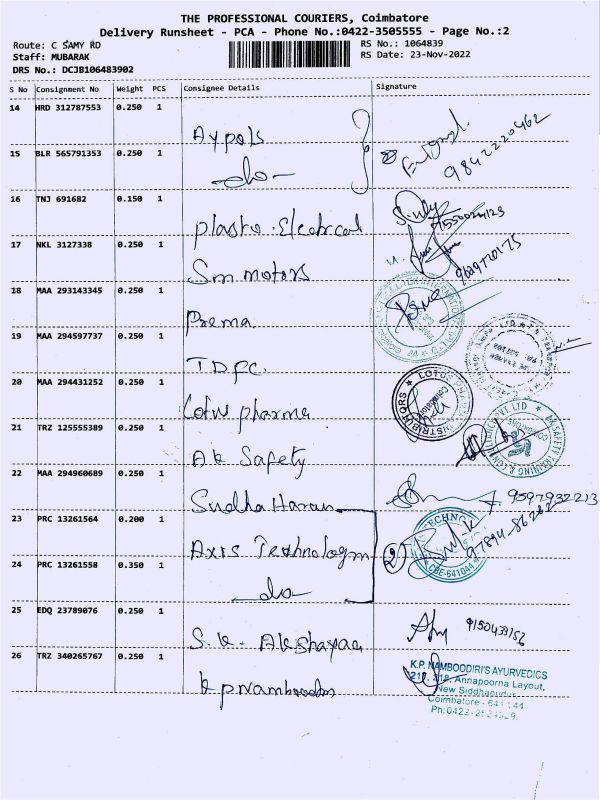 THE PROFESSIONAL COURIERS, Coimbatore
Delivery Runsheet - PCA - Phone No.:0422-3505555 - Page No.:2
Route: C SAMY RD RS No.: 1064839
Staff: MUBARAK RS Date: 23-Nov-2022
DRS No.: DCJB106483902
S No Consignment No Weight PCS Consignee Details Signature
14 HRD 312787553 0.250 1
Aypols
9842220462
15 BLR 565791353 0.250 1
-do-
16 TNJ 691682 0.150 1
Plasto. Electrical
17 NKL 3127338 0.250 1
Sm motors
18 MAA 293143345 0.250 1
Prema
19 MAA 294597737 0.250 1
TDPC.
20 MAA 294431252 0.250 1
Lotus pharma
LOTUS
DISTRIBUTORS
21 TRZ 125555389 0.250 1
AK Safety
AK SAFETY TRAINING & CONSULTANCY PVT LTD
22 MAA 294960689 0.250 1
Sudha Haran
9597932213
23 PRC 13261564 0.200 1
Axis Technologm
2
CBE-641044
24 PRC 13261558 0.350 1
do
25 EDQ 23789076 0.250 1
S.K. Akshayaa
26 TRZ 340265767 0.250 1
K.P. NAMBOODIRI'S AYURVEDICS
Annapoorna Layout,
New
Coimbatore - 641
Ph:0422-